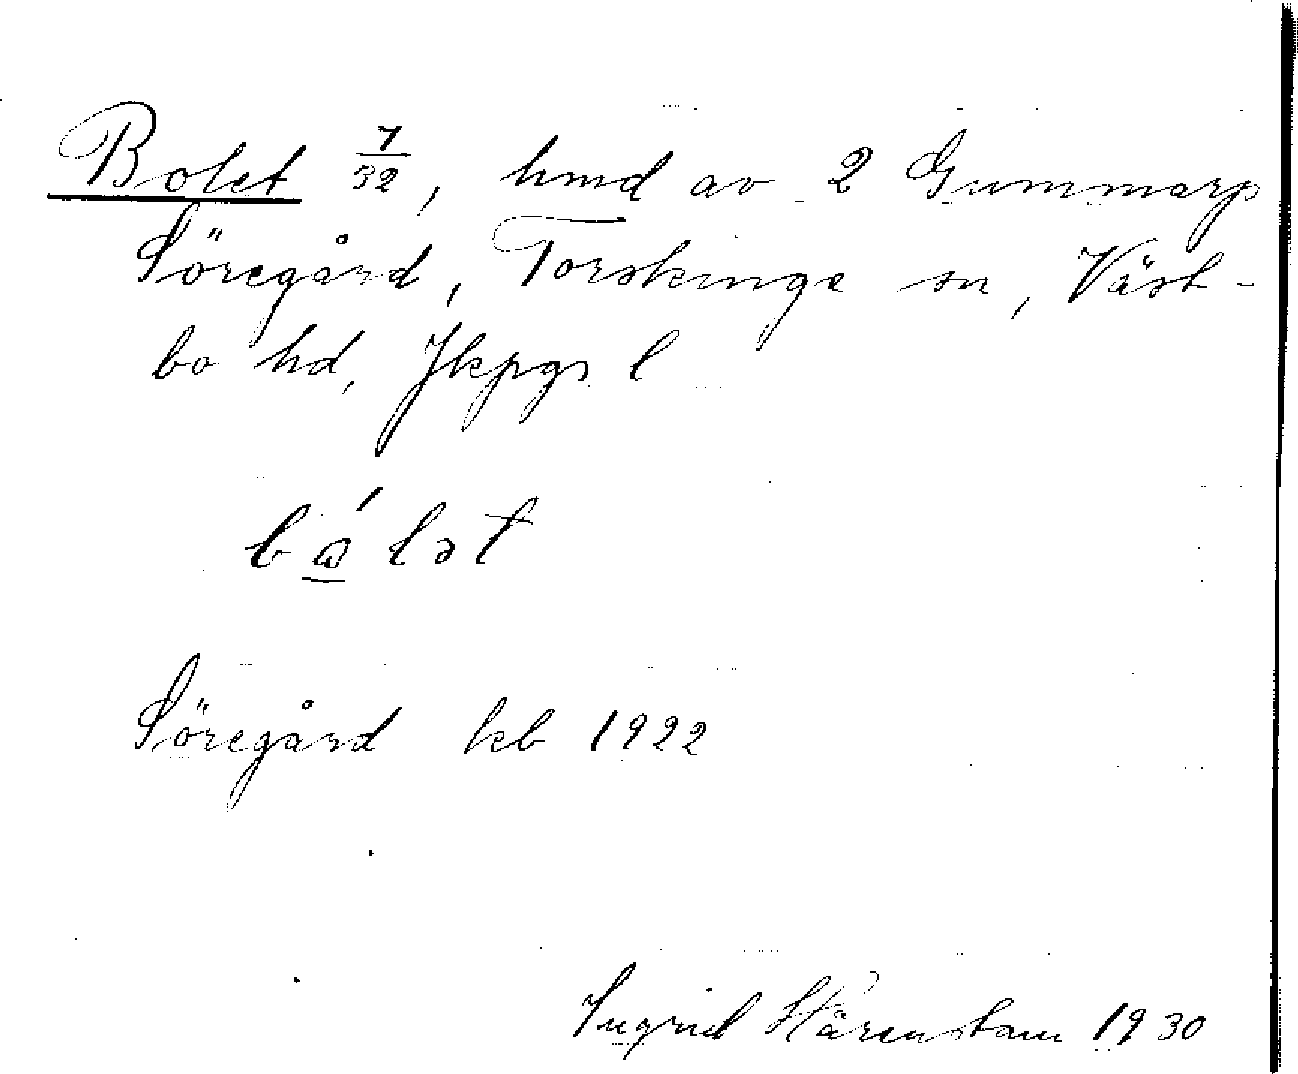 Bolet 7/32, hmd av 2 Gummarp
Söregård, Torskinge sn, Väst-
bo hd, Jkpgs l
bώ̲lət
Söregård kb 1922
Ingrid Härenstam 1930